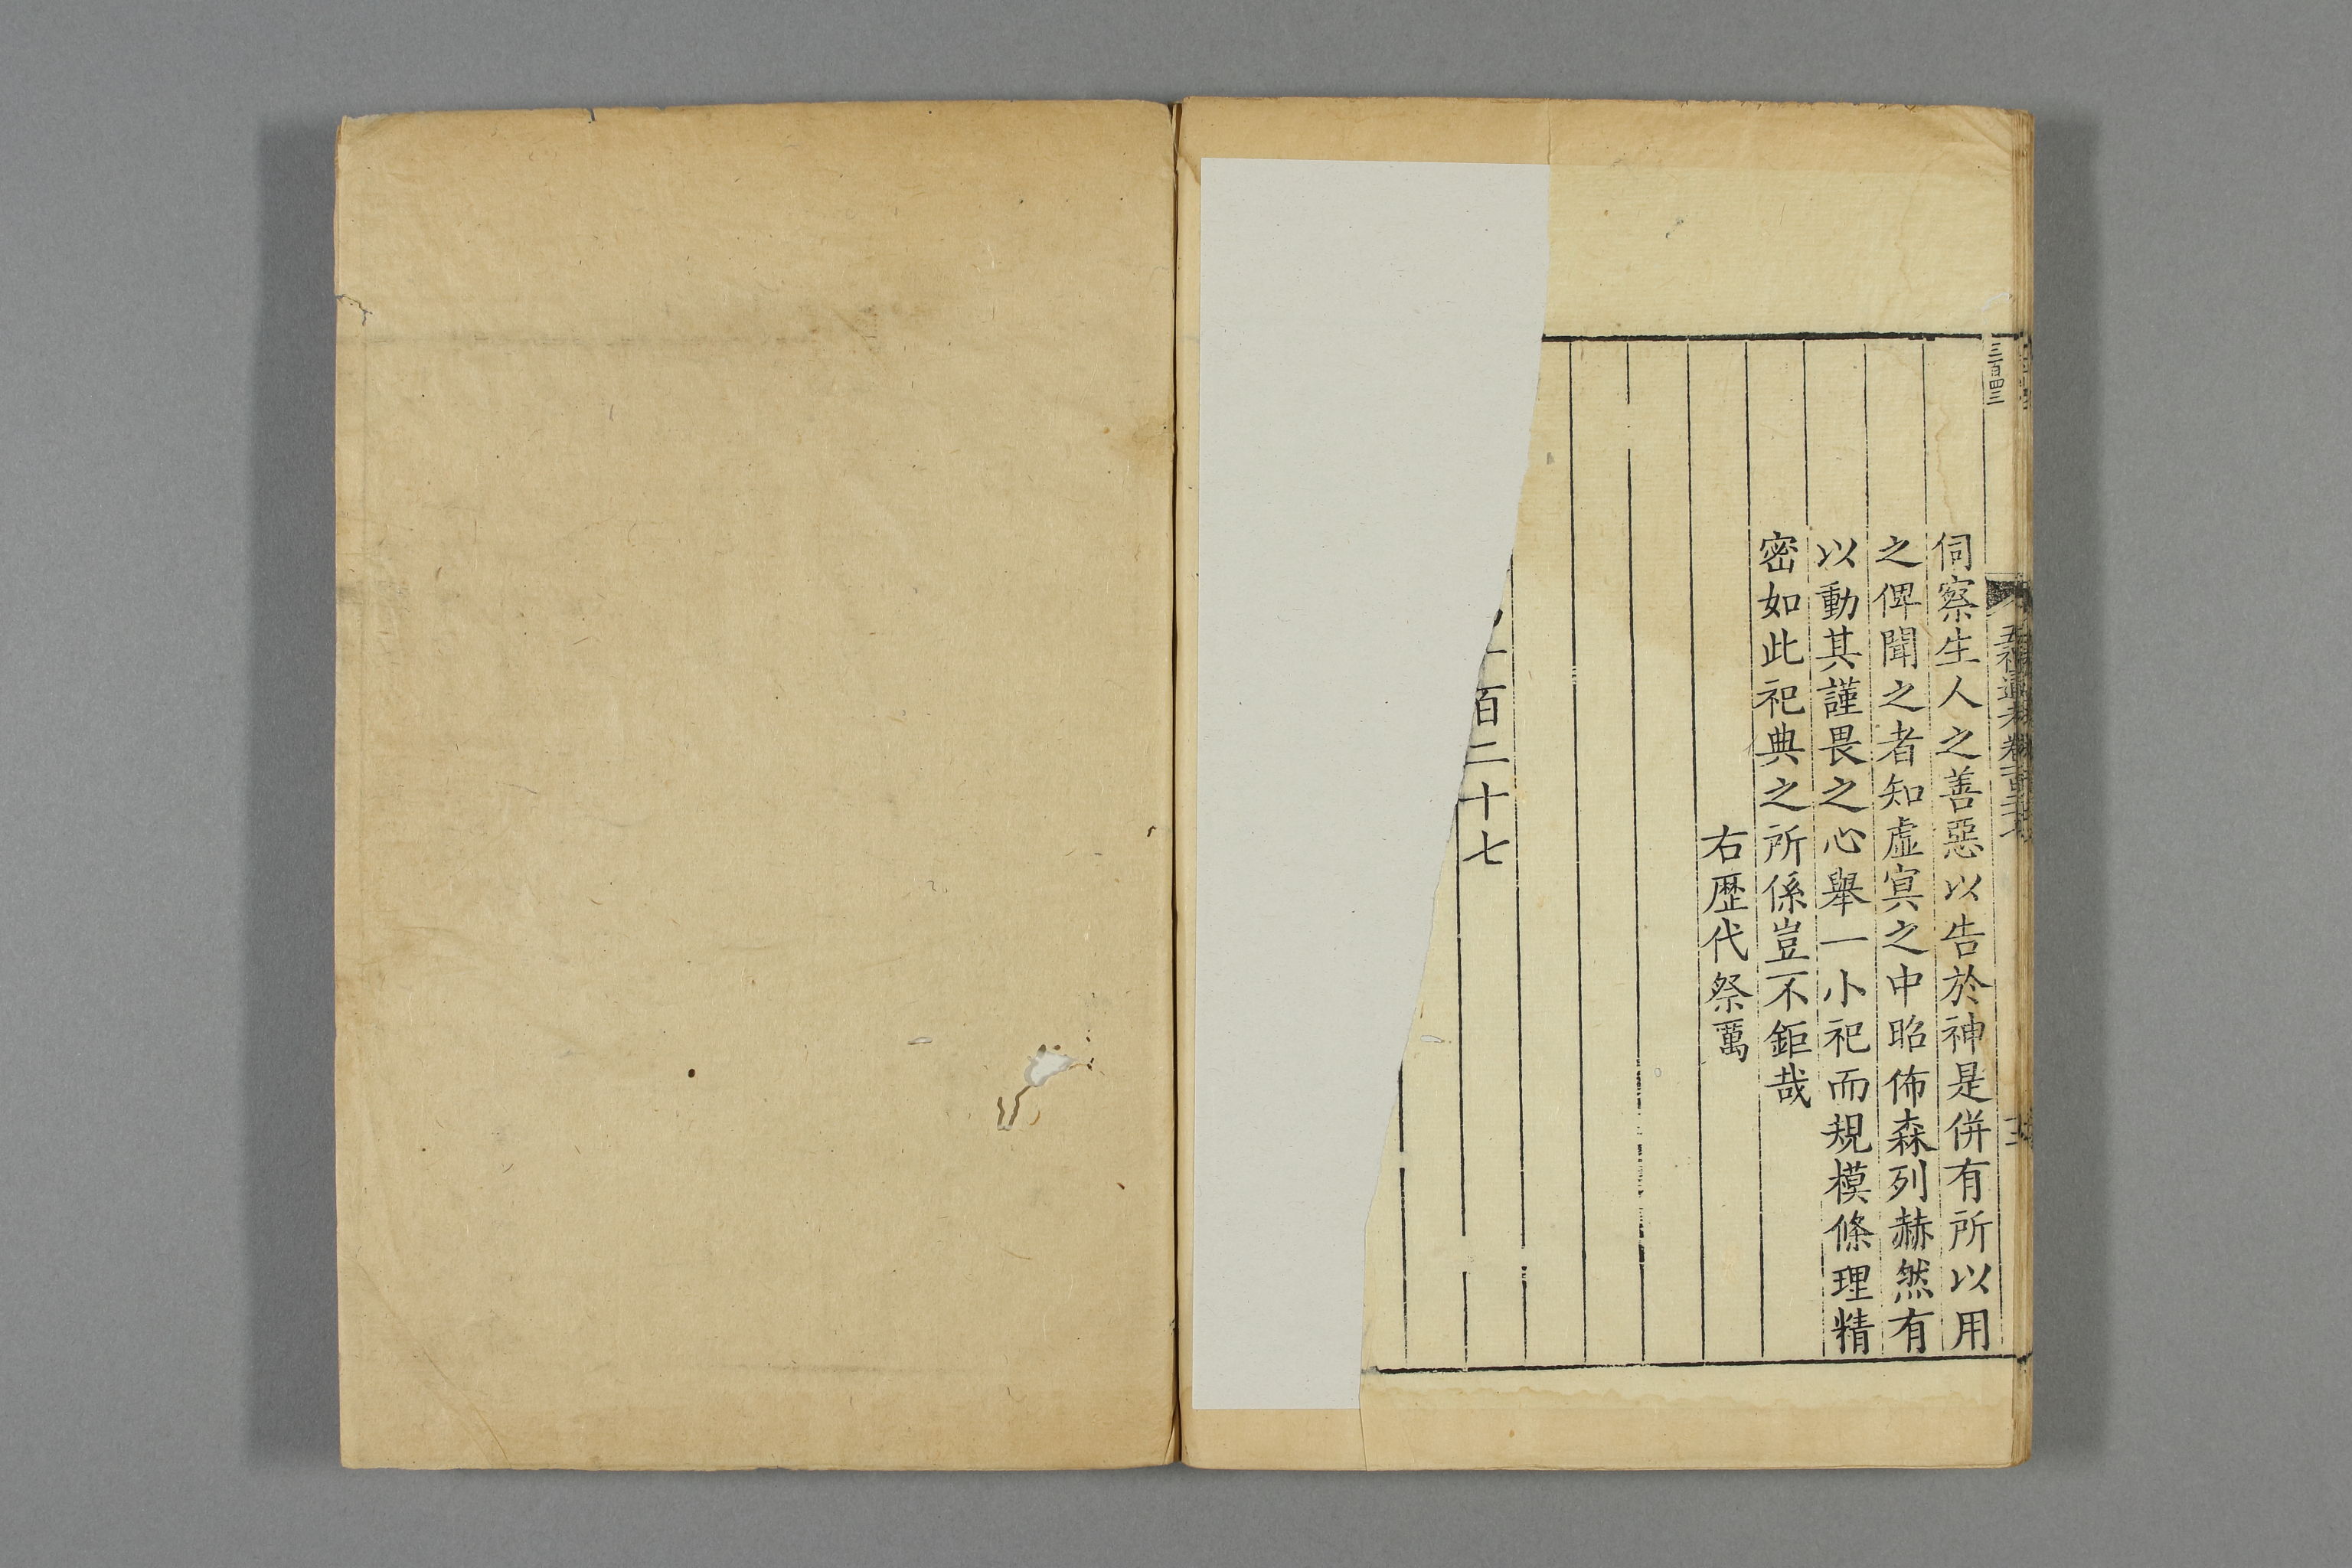 三百四三
五禮通考卷一百二十七
伺察生人之善惡以告於神是併有所以用
之俾聞之者知虛㝠之中昭佈森列赫然有
以動其謹畏之心舉一小祀而規模條理精
密如此祀典之所係豈不鉅哉
右歷代祭萬
百二十七